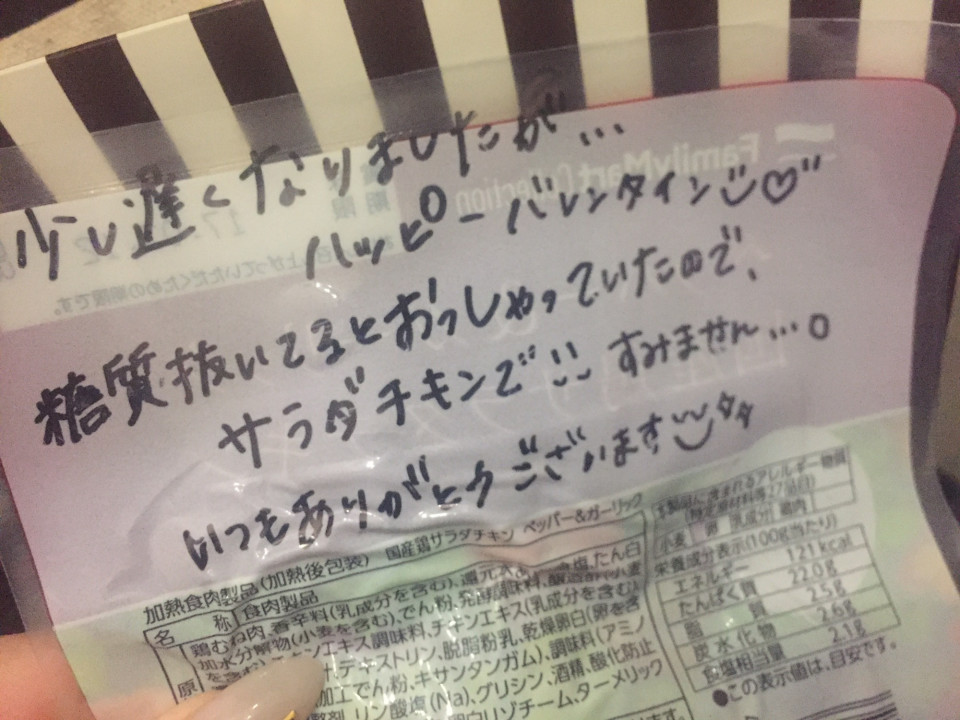 少し遅くなりましたが...
ハッピーバレンタイン
糖質抜いてるとおっしゃっていたので、
サラダチキンで!! すみません...。
いつもありがとうございます
FamilyMart Collection
加熱食肉製品(加熱後包装) 国産鶏サラダチキン ペッパー&ガーリック
名 称 食肉製品
鶏むね肉、香辛料(乳成分を含む)、還元水あ 食塩、たん白
加水分解物(小麦を含む)、でん粉、発酵調味料、醸造酢(小麦
を含む)、チキンエキス調味料、チキンエキス(乳成分を含む)
デキストリン、脱脂粉乳、乾燥卵白(卵を含
加工でん粉、キサンタンガム)、調味料(アミノ
リン酸塩(Na)、グリシン、酒精、酸化防止
卵白リゾチーム、ターメリック
原
本製品に含まれるアレルギー物質
(特定原材料等27品目)
小麦 卵 乳成分 鶏肉
栄養成分表示(100g当たり)
エネルギー 121kcal
たんぱく質 22.0g
脂 質 2.5g
炭水化物 2.6g
食塩相当量 2.1g
●この表示値は、目安です。